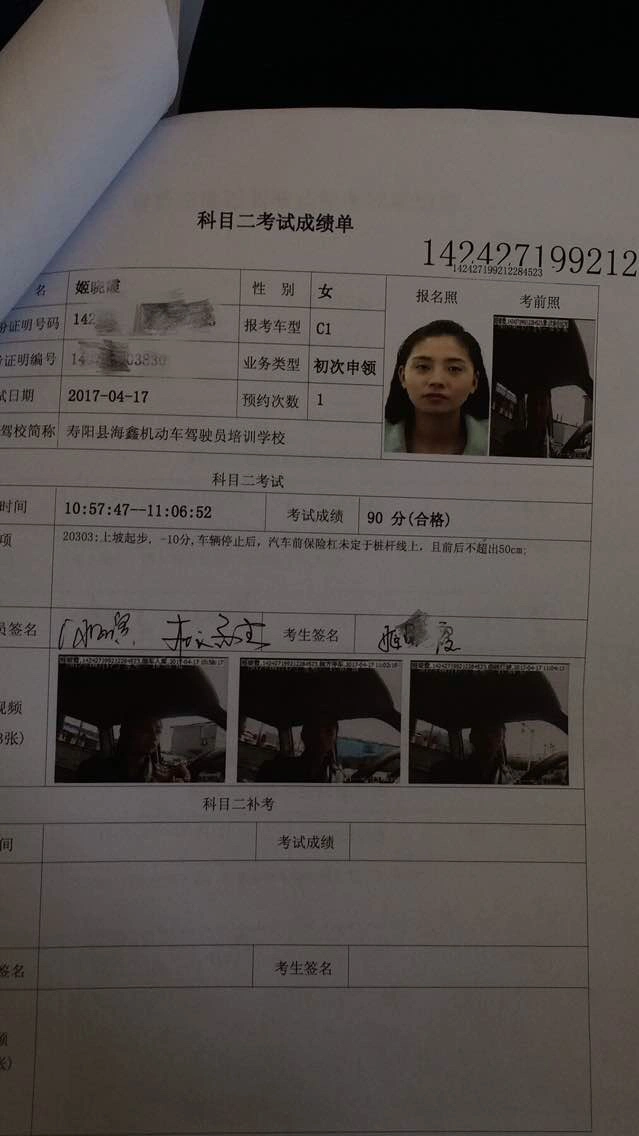 科目二考试成绩单
142427199212
142427199212284523
名 姬晓霞 性 别 女 报名照 考前照
份证明号码 142 报考车型 C1
证明编号 业务类型 初次申领
试日期 2017-04-17 预约次数 1
驾校简称 寿阳县海鑫机动车驾驶员培训学校
科目二考试
时间 10:57:47--11:06:52 考试成绩 90 分(合格)
项 20303:上坡起步, -10分,车辆停止后, 汽车前保险杠未定于桩杆线上, 且前后不超出50cm;
员签名 考生签名
视频
3张)
科目二补考
间 考试成绩
签名 考生签名
频
张)